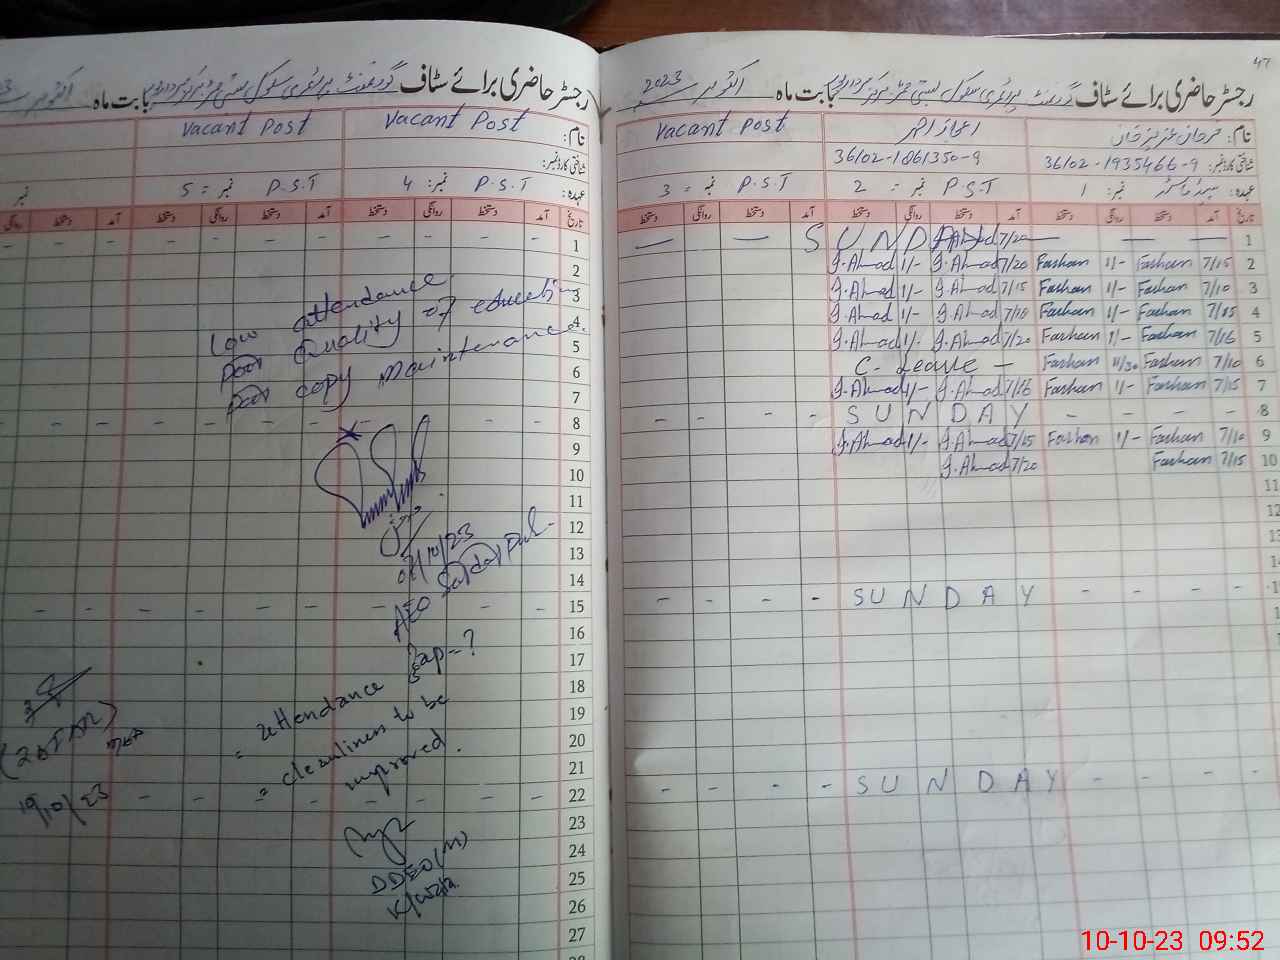 47
رجسٹر حاضری برائے سٹاف گورنمنٹ پرائمری سکول بستی بابت ماہ اکتوبر 2023
نام: فرحان عزیز خان اعجاز احمد Vacant Post
شناختی کارڈ نمبر: 36102-1935466-9 36102-1861350-9
عہدہ: ہیڈ ماسٹر نمبر: 1 P.S.T نمبر: 2 P.S.T نمبر = 3
تاریخ آمد دستخط روانگی دستخط آمد دستخط روانگی دستخط آمد دستخط روانگی دستخط
SUNDAY 1
J.Ahmad 1/- J.Ahmad 7/20 Farhan 1/- Farhan 7/15 2
J.Ahmad 1/- J.Ahmad 7/15 Farhan 1/- Farhan 7/10 3
J.Ahmad 1/- J.Ahmad 7/18 Farhan 1/- Farhan 7/15 4
J.Ahmad 1/- J.Ahmad 7/20 Farhan 1/- Farhan 7/16 5
C- Leave - Farhan 11/30 Farhan 7/10 6
J.Ahmad 1/- J.Ahmad 7/16 Farhan 1/- Farhan 7/15 7
- SUNDAY - - - - 8
J.Ahmad 1/- J.Ahmad 7/15 Farhan 1/- Farhan 7/10 9
J.Ahmad 7/20 Farhan 7/15 10
11
12
13
14
- - - - SUNDAY - - - -
- - - - SUNDAY - - - -
رجسٹر حاضری برائے سٹاف گورنمنٹ پرائمری سکول بستی بابت ماہ اکتوبر
نام: Vacant Post Vacant Post
شناختی کارڈ نمبر:
عہدہ: P.S.T نمبر: 4 P.S.T نمبر = 5 نمبر
تاریخ آمد دستخط روانگی دستخط آمد دستخط روانگی دستخط آمد دستخط روانگی
1
2
3
4
5
6
7
8
9
10
11
12
13
14
15
16
17
18
19
20
21
22
23
24
25
26
27
28
Low attendance
Poor Quality of education
Poor copy maintenance.
/10/23
AEO Sardar Pur
= attendance gap-?
= cleanliness to be
improved.
DDEO(M)
K/wala
10/10/23
10-10-23 09:52